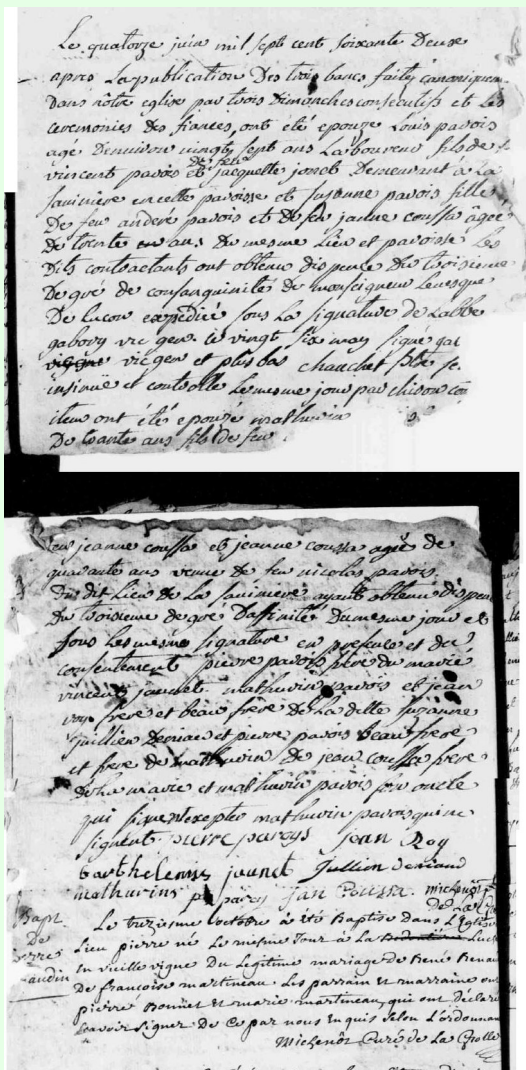 Le quatorze juin mil sept cent soixante Deuse
apres La publication Des trois bancs faites canoniquem
Dans nôtre eglise par trois Dimanches consecutifs et Les
ceremonies des fiances, ont eté epouze Louis pavois
agé Denuiron vingt sept ans Laboureur fils de
vincent pavois et de feue jacquette jonet Demeurant à La
saunniere en cette paroisse et suzanne pavois fille
De feu andere pavois et de feu janne coussa âgée
De trente ans du mesme Lieu et paroisse Les
Dits contractants ont obtenu dispence Du troisieme
De gré de consanguinité de monseigneur Levesque
De Lucon expédiée sous La signature de Labbe
gabory vic gen. ce vingt six may signé gab
vic gen et plus bas chauchet ptre se
insinué et controlle Le mesme jour par chison con
item ont étés epouze mathurin
De trante ans fils de feu
feu jeanne coussa et jeanne coussa agé de
quarante ans veuve de feu nicolas pavois
Du dit Lieu de La saunniere ayant obtenu dispen
Du troisieme de gré Daffinité Du mesme jour et
sous Les mesme signature en presence et du
consentement pierre pavois frere du marié
vincent jaunet mathurin pavois et jean
roy frere et beau frere de La ditte suzanne
juillien Deniau et pierre pavois beau frere
et frere de mathurin De jean coussa frere
de La mariee et mathurin pavois son oncle
qui signent excepté mathurin pavois qui ne
signent. pierre paroys jean Roy
barthelemy jaunet Jullien deniaud
mathurins paroy Jan Coussa. michenôt p
de La G
Bapt
De
pierre
audin
Le treziesme octobre à été Baptisé Dans L'Eglise
Lieu pierre né Le mesme Jour à La
En vieille vigne Du Legitime mariage de René Renau
De francoise martineau. Les parrain et marraine on
pierre Bonnet et marie martineau, qui ont déclaré
scavoir signer De Ce par nous Enquis selon L'ordonnan
Michenôt Curé de La Grolle